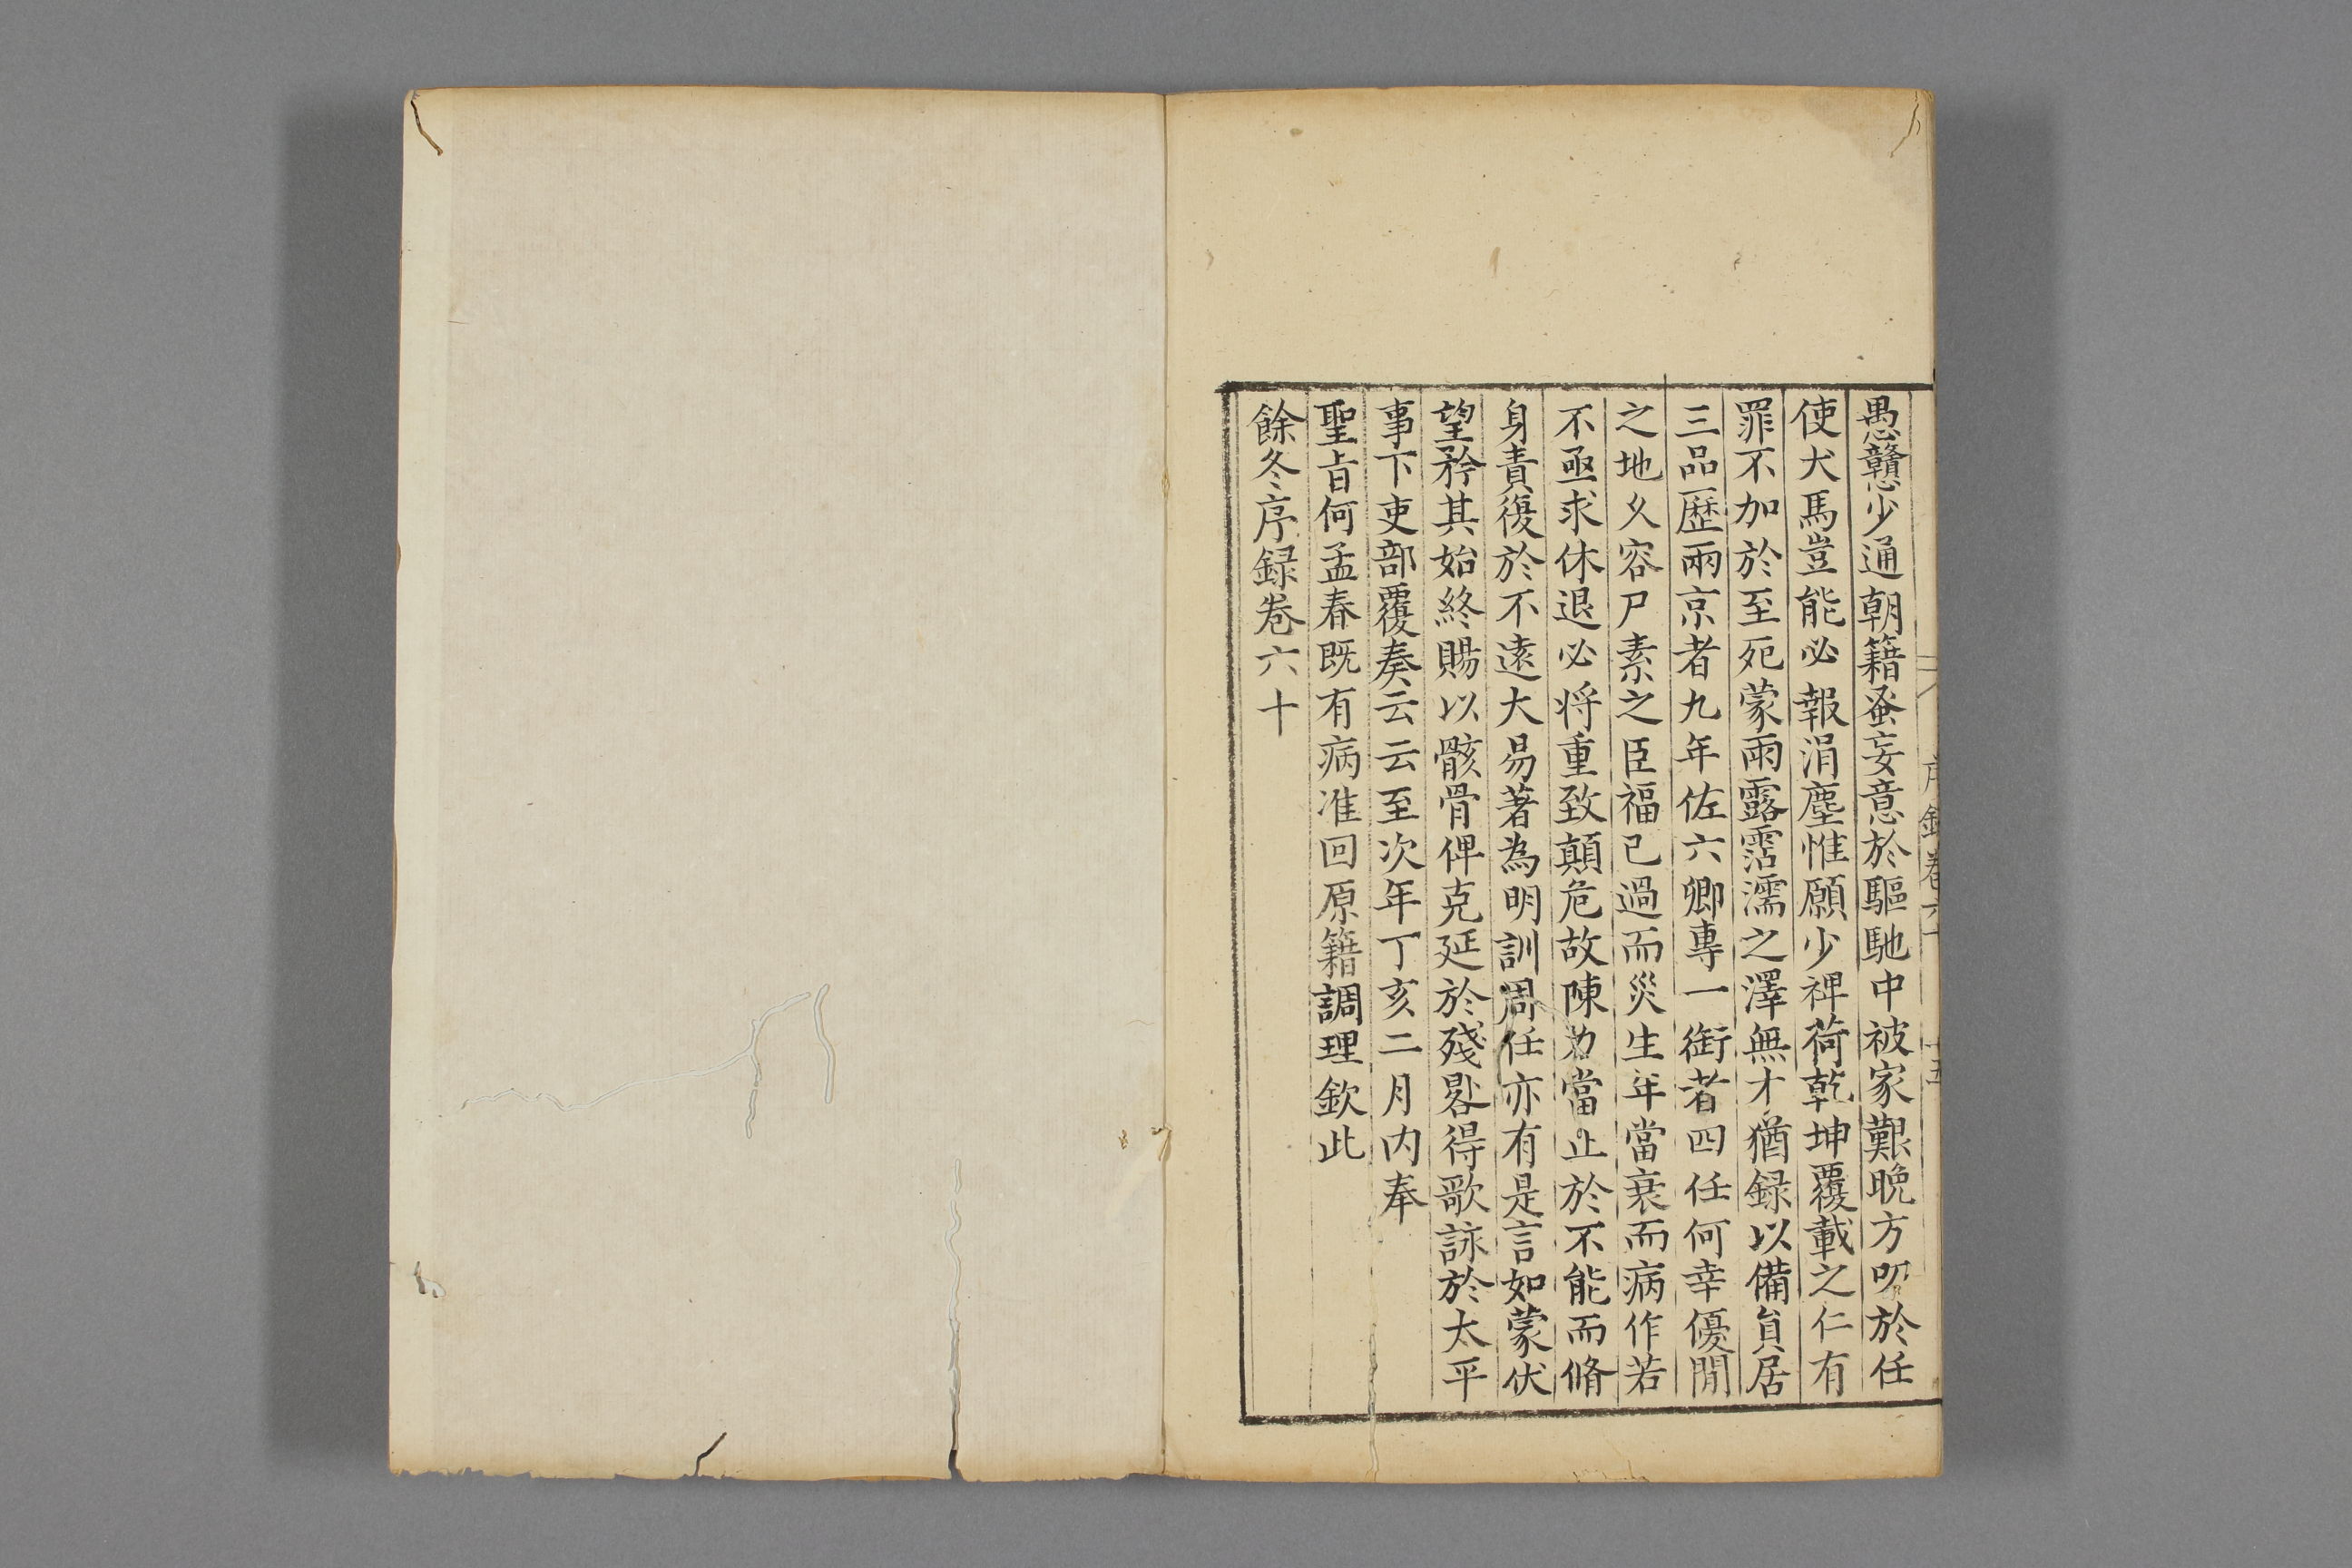 愚戇少通朝籍蚤妄意於驅馳中被家艱晚方叨於任
使犬馬豈能必報涓塵惟願少裨荷乾坤覆載之仁有
罪不加於至死蒙雨露霑濡之澤無才猶録以備貟居
三品歷兩京者九年佐六卿專一銜者四任何幸優閒
之地乆容尸素之臣福已過而災生年當衰而病作若
不亟求休退必将重致顛危故陳力當止於不能而脩
身責復於不遠大易著為明訓周任亦有是言如蒙伏
望矜其始終賜以骸骨俾克延於殘晷得歌詠於太平
事下吏部覆奏云云至次年丁亥二月内奉
聖旨何孟春既有病准回原籍調理欽此
餘冬序録卷六十